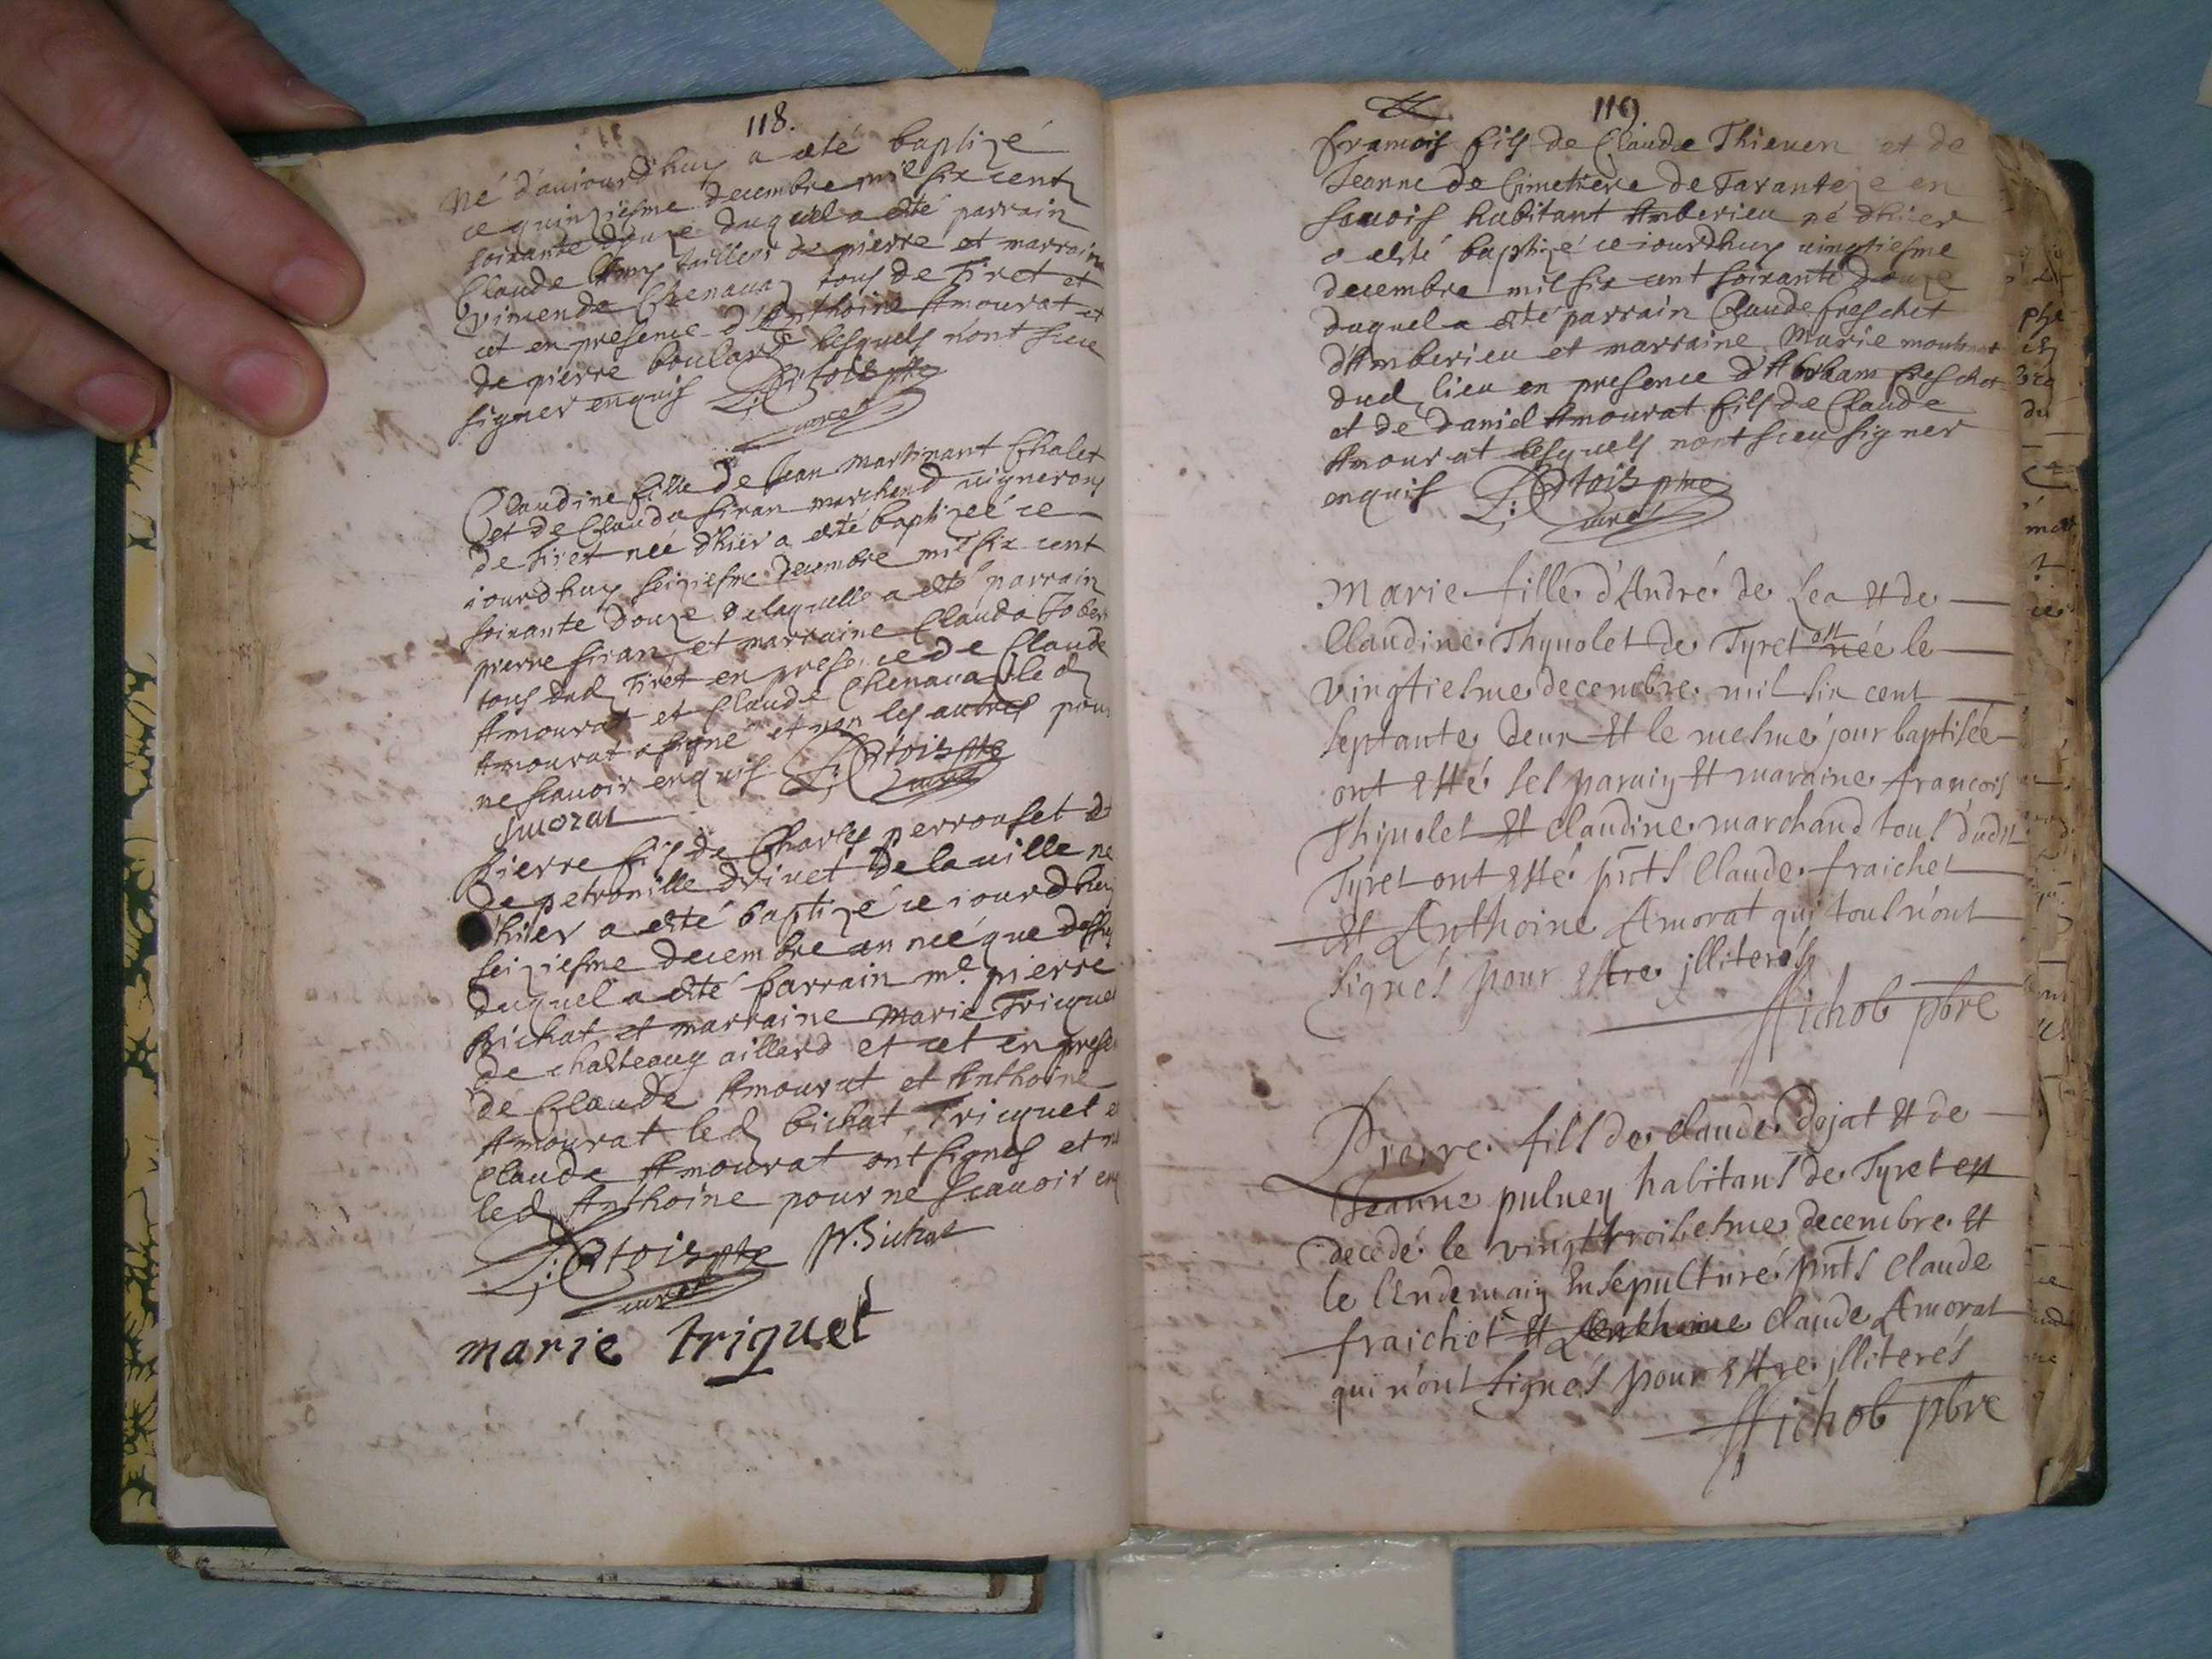 118.
né d'auiourdhuy a esté baptizé
ce quinziesme decembre mil six cent
soixante douze duquel a esté parrain
Claude tailleur de pierre et marraine
Vincende Chenaua tous de Tiret et
cet en presence d'Anthoine Amourat et
de pierre boulard lesquels n'ont sceu
signer enquis
curé
Claudine fille de Jean Martinant Chalet
et de Clauda siran marchand uignerons
de Tiret neé dhier a esté baptizeé ce
iourdhuy seiziesme decembre mil six cent
soixante douze delaquelle a esté parrain
pierre siran et marraine Clauda
tous dud Tiret en presence de Claude
Amourat et Claude Chenaua led
Amourat a signé et non les autres pour
ne scauoir enquis
curé
Amorat
Pierre fils de Charles perrouset et
de petronille driuet de la uille né
d'hier a esté baptizé ce iourdhuy
seiziesme decembre an neé que dessus
duquel a esté parrain me. pierre
bichat et marraine Marie Tricquet
de chasteaugaillard et cet en prese
de Claude Amourat et Anthoine
Amourat led bichat, Tricquet et
Claude Amourat ont signes et n
led Anthoine pour ne scauoir enq
P. Bichat
curé
marie triquet
119
francois fils de Claude Thieuen et de
Jeanne de Cimetiere de Taranteze en
sauois habitant Amberieu né d'hier
a esté baptizé ce iourdhuy uingtiesme
decembre mil six cent soixante douze
duquel a esté parrain Claude freschet
d'Amberieu et marraine Marie
dud lieu en presence d'Abraam freschet
et de daniel Amourat fils de Claude
Amourat lesquels n'ont sceu signer
enquis
curé
Marie fille d'André de Lea et de
Claudine Thyuolet de Tyret est née le
vingtiesme decembre mil six cent
septante deux et le mesme jour baptisée
ont esté ses parain et maraine francois
Thyuolet et Claudine marchand tous dudit
Tyret ont esté pnts Claude fraichet
et Anthoine Amorat qui tous n'ont
signés pour estre jlliterés
pbre
Pierre fils de claude Dojat et de
Jeanne puluen habitans de Tyret est
decedé le vingttroisiesme decembre et
le lendemain Ensepulturé pnts Claude
fraichet et Anthoine Claude Amorat
qui n'ont signés pour estre jlliterés
pbre